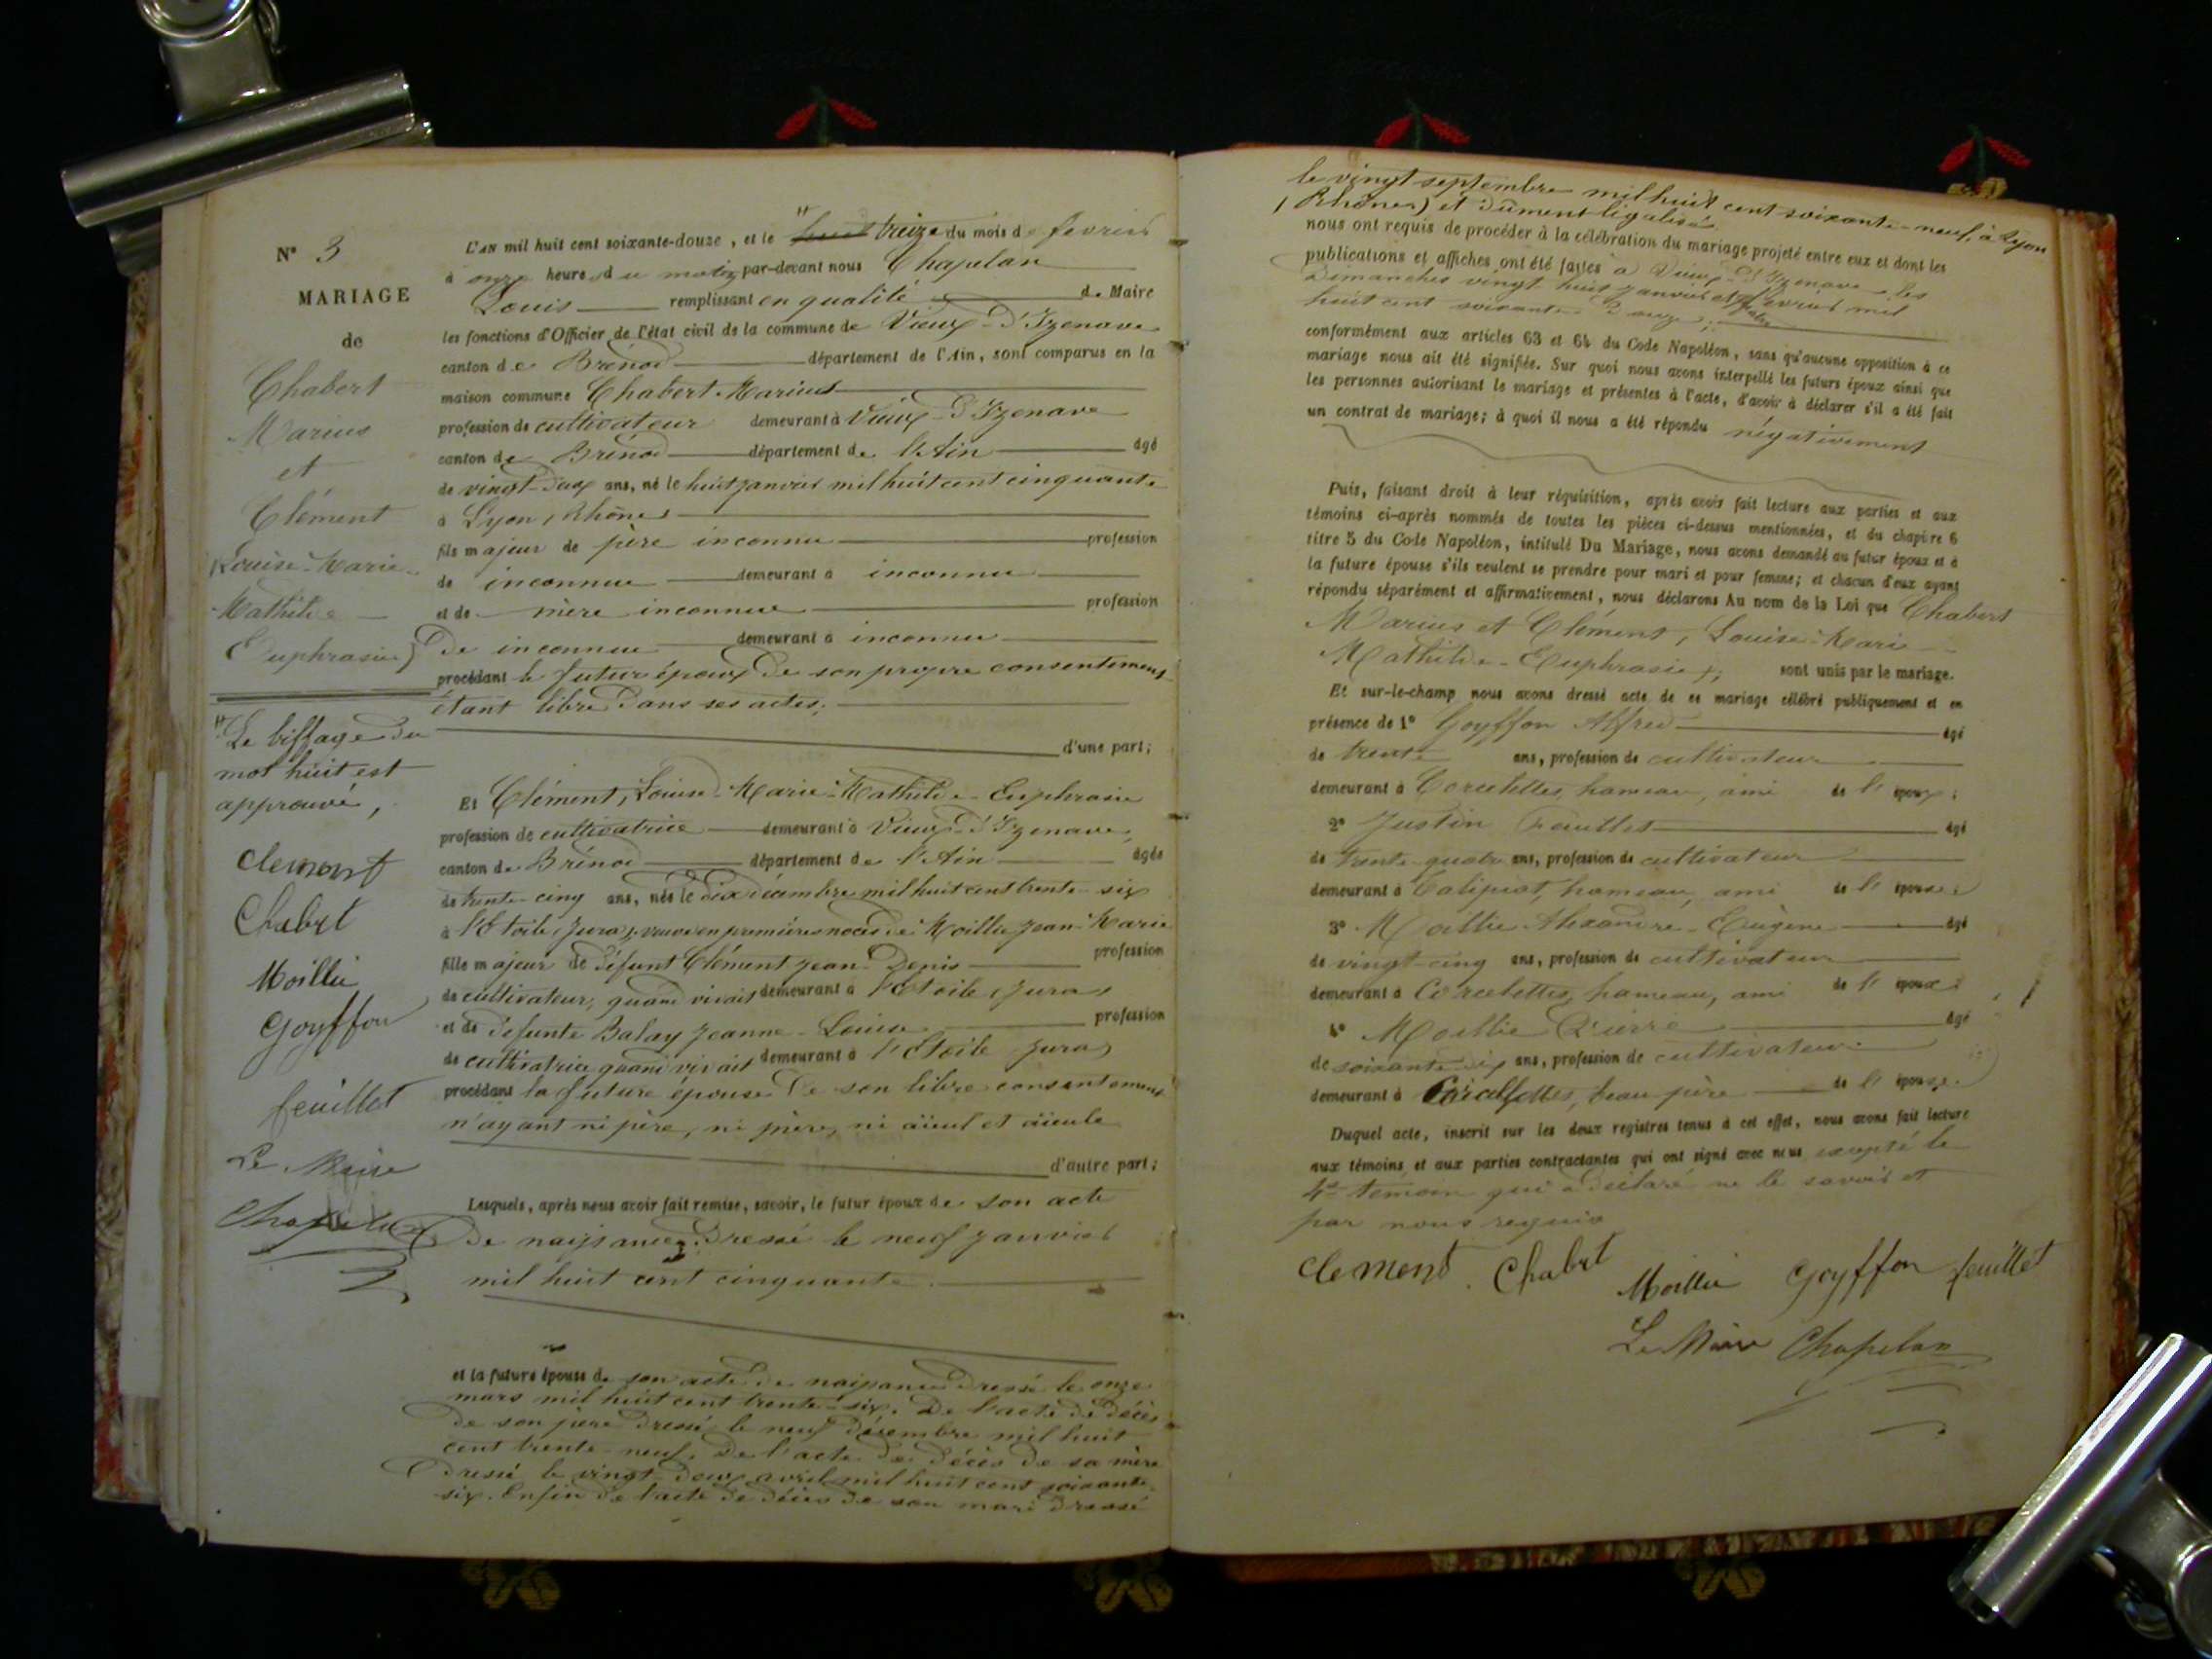 N° 3
MARIAGE
de
Chabert
Marius
et
Clément
Louise-Marie-
Mathilde
Euphrasie)
"Le biffage du
mot huit est
approuvé,
Clement
Chabert
Moillie
Goyffon
feuillet
Le Maire
Chapelan
L'AN mil huit cent soixante-douze, et le " huit treize du mois de fevrier
à onze heure du matin par-devant nous Chapelan
Louis remplissant en qualité de Maire
les fonctions d'Officier de l'état civil de la commune de Vieux-d'Izenave
canton de Brénod département de l'Ain, sont comparus en la
maison commune Chabert Marius
profession de cultivateur demeurant à Vieux-d'Izenave
canton de Brénod département de l'Ain âgé
de vingt-deux ans, né le huit janvier mil huit cent cinquante
à Lyon (Rhône)
fils majeur de père inconnu profession
de inconnue demeurant à inconnu
et de mère inconnue profession
De inconnue demeurant à inconnu
procédant le futur époux de son propre consentement
étant libre dans ses actes;
d'une part;
Et Clément, Louise-Marie-Mathilde-Euphrasie
profession de cultivatrice demeurant à Vieux-d'Izenave,
canton de Brénod département de l'Ain âgée
de trente-cinq ans, née le dix décembre mil huit cent trente-six
à l'Etoile (Jura); veuve en premières noces de Moillie Jean-Marie
fille majeur de défunt Clément Jean-Denis profession
de cultivateur, quand vivait demeurant à l'Etoile (Jura)
et de défunte Balay Jeanne-Louise profession
de cultivatrice quand vivait demeurant à l'Etoile Jura)
procédant la future épouse de son libre consentement
n'ayant ni père, ni mère, ni aïeul et aïeule
d'autre part;
Lesquels, après nous avoir fait remise, savoir, le futur époux de son acte
de naissance dressé le neuf janvier
mil huit cent cinquante.
et la future épouse de son acte de naissance dressé le onze
mars mil huit cent trente-six. De l'acte de décès
de son père dressé le neuf décembre mil huit
cent trente-neuf. De l'acte de décès de sa mère
dressé le vingt-deux avril mil huit cent soixante-
six. Enfin de l'acte de décès de son mari dressé
le vingt septembre mil huit cent soixante-neuf, à Lyon
(Rhône) et dûment légalisé
nous ont requis de procéder à la célébration du mariage projeté entre eux et dont les
publications et affiches ont été faites à Vieux-d'Izenave les
Dimanches vingt huit janvier et quatre fevrier mil
huit cent soixante-douze;
conformément aux articles 63 et 64 du Code Napoléon, sans qu'aucune opposition à ce
mariage nous ait été signifiée. Sur quoi nous avons interpellé les futurs époux ainsi que
les personnes autorisant le mariage et présentes à l'acte, d'avoir à déclarer s'il a été fait
un contrat de mariage; à quoi il nous a été répondu négativement
Puis, faisant droit à leur réquisition, après avoir fait lecture aux parties et aux
témoins ci-après nommés de toutes les pièces ci-dessus mentionnées, et du chapitre 6
titre 5 du Code Napoléon, intitulé Du Mariage, nous avons demandé au futur époux et à
la future épouse s'ils veulent se prendre pour mari et pour femme; et chacun d'eux ayant
répondu séparément et affirmativement, nous déclarons Au nom de la Loi que Chabert
Marius et Clément, Louise-Marie-
Mathilde-Euphrasie sont unis par le mariage.
Et sur-le-champ nous avons dressé acte de ce mariage célébré publiquement et en
présence de 1° Goyffon Alfred âgé
de trente ans, profession de cultivateur
demeurant à Corcelettes, hameau, ami de l'époux;
2° Justin Feuillet âgé
de trente-quatre ans, profession de cultivateur
demeurant à hameau, ami de l'épouse
3° Moillie Alexandre-Eugène âgé
de vingt-cinq ans, profession de cultivateur
demeurant à Corcelettes, hameau, ami de l'époux
4° Moillie Pierre âgé
de soixante-dix ans, profession de cultivateur
demeurant à Corcelettes, beau père de l'épouse.
Duquel acte, inscrit sur les deux registres tenus à cet effet, nous avons fait lecture
aux témoins et aux parties contractantes qui ont signé avec nous excepté le
4e témoin qui a déclaré ne le savoir et
par nous requis
Clement Chabert Moillie Goyffon feuillet
Le Maire Chapelan